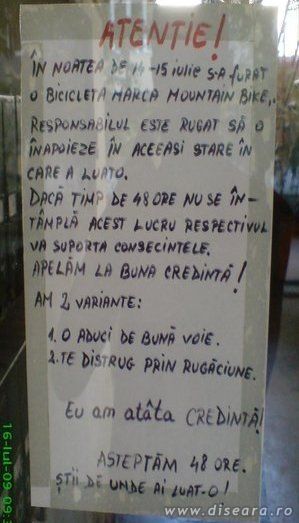 ATENȚIE!
ÎN NOATEA DE 14-15 iulie s-a furat
O BICICLETA MARCA MOUNTAIN BIKE,.
RESPONSABILUL ESTE RUGAT SĂ O
ÎNAPOIEZE ÎN ACEEASI STARE ÎN
CARE A LUATO.
DACĂ TIMP DE 48 ORE NU SE ÎN-
TÂMPLĂ ACEST LUCRU RESPECTIVUL
VA SUPORTA CONSECINTELE.
APELĂM LA BUNA CREDINTĂ!
AM 2 VARIANTE:
1. O ADUCI DE BUNĂ VOIE.
2. TE DISTRUG PRIN RUGĂCIUNE.
Eu am atâta CREDINTĂ!
ASTEPTĂM 48 ORE.
ȘTII DE UNDE AI LUAT-O!
16-Iul-09
www.diseara.ro